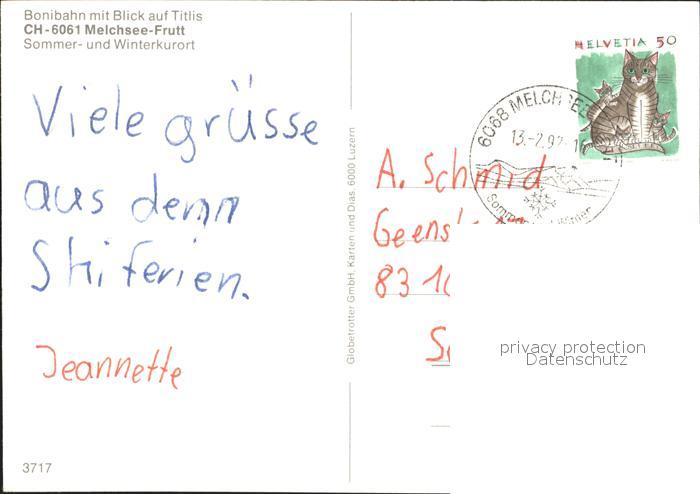 Bonibahn mit Blick auf Titlis
CH-6061 Melchsee-Frutt
Sommer- und Winterkurort
Viele grüsse
aus denn
Skiferien.
Jeannette
3717
Globetrotter GmbH, Karten und Dias, 6000 Luzern
HELVETIA 50
6068 MELCHSEE
13.-2.92-16
Sommer
A. Schmid
83 10
privacy protection
Datenschutz